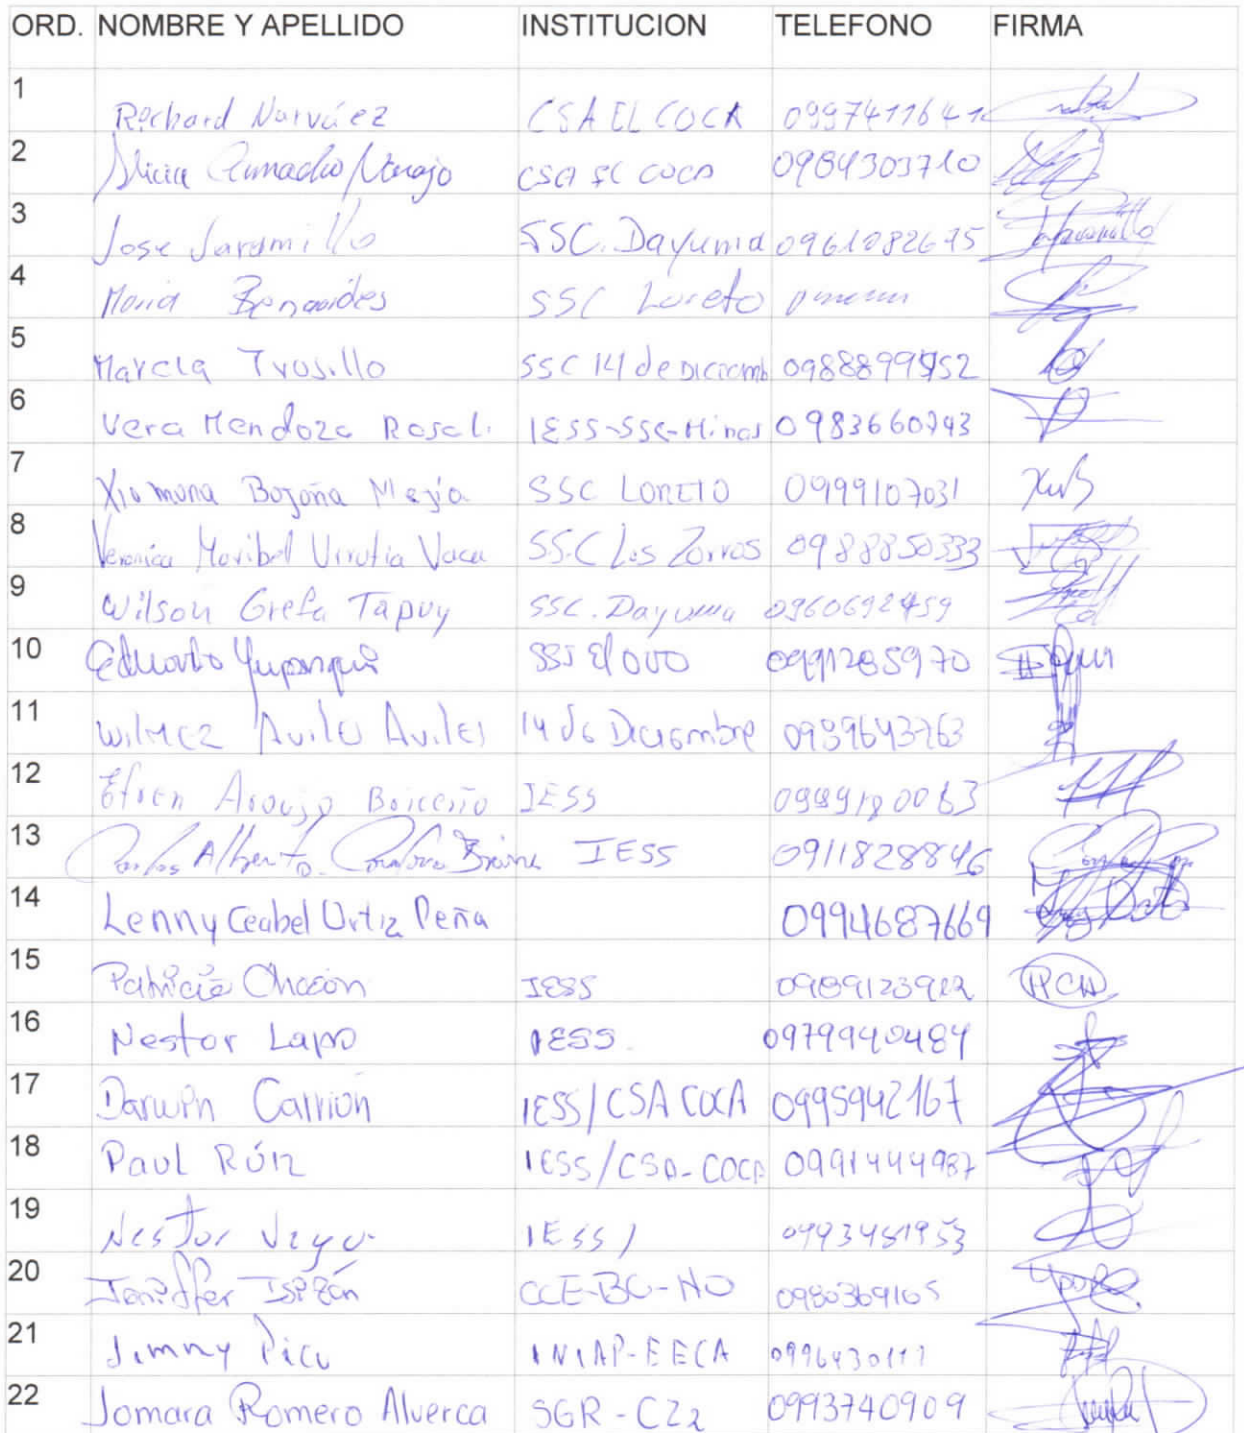 ORD. NOMBRE Y APELLIDO INSTITUCION TELEFONO FIRMA
1 Richard Narváez CSA EL COCA
2 Alicia Camacho Naranjo CSA EL COCA 0984303710
3 Jose Jaramillo SSC. Dayuma 0961082675
4 Maria Benavides SSC Loreto
5 Marcia Trujillo SSC 14 de Diciemb 0988899952
6 Vera Mendoza Rosal. IESS-SSC-Minas 0983660743
7 Xiomara Bojoña Mejía SSC LORETO 0999107031
8 Veronica Maribel Urrutia Vaca SSC Los Zorros 0988850333
9 Wilson Grefa Tapuy SSC. Dayuma 0960692459
10 Eduardo Yupanqui 0991285970
11 Wilmer Aviles Aviles 14 de Diciembre 0989643763
12 Efren Araujo Briceño IESS
13 Carlos Alberto IESS 0911828846
14 Lenny Ceabel Ortiz Peña 0994687669
15 Patricia Chacón IESS 0989123922 PCH
16 Nestor Lapo IESS. 0979940484
17 Darwin Carrión IESS/CSA COCA 0995942167
18 Paul Rúiz IESS/CSA-COCA 0991444987
19 Nestor Vega IESS/ 0993481953
20 Jeniffer CCE-BC-NO 0980369105
21 Jimmy Pico INIAP-EECA 0996430111
22 Jomara Romero Alverca SGR - CZ2 0993740909